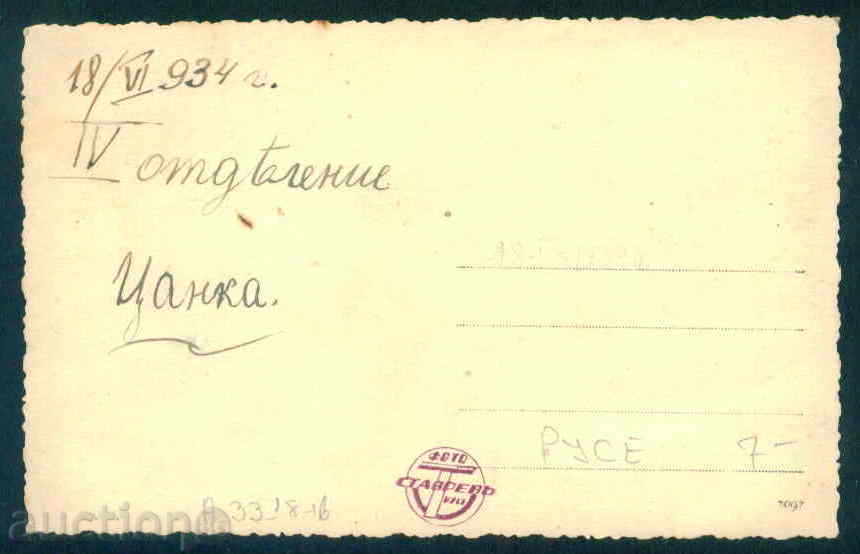 18/VI 934 г.
IV отдѣление
Цанка.
РУСЕ 7-
ФОТО
СТАВРЕВЪ
A 3318-ів
auction